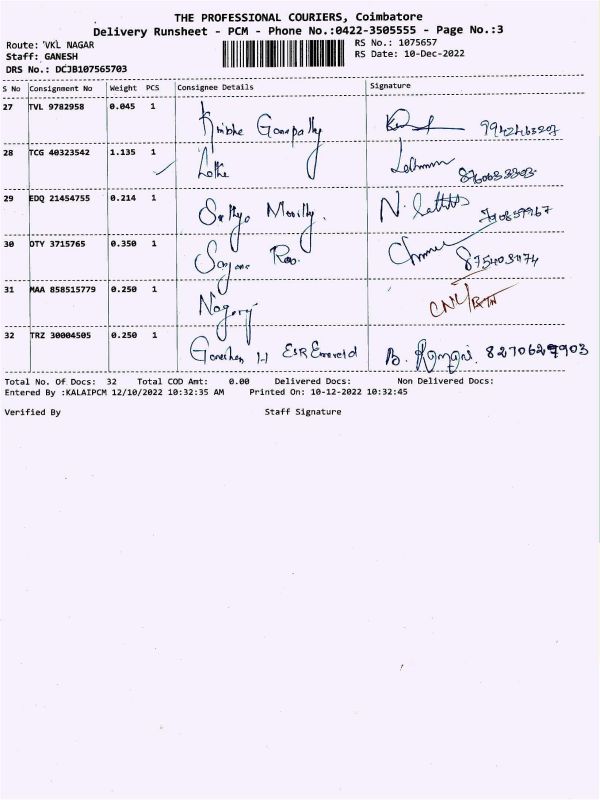 THE PROFESSIONAL COURIERS, Coimbatore
Delivery Runsheet - PCM - Phone No.:0422-3505555 - Page No.:3
Route: VKL NAGAR
RS No.: 1075657
Staff: GANESH
RS Date: 10-Dec-2022
DRS No.: DCJB107565703
S No Consignment No Weight PCS Consignee Details Signature
27 TVL 9782958 0.045 1
28 TCG 40323542 1.135 1
29 EDQ 21454755 0.214 1 Sathya
30 OTY 3715765 0.350 1 Rao.
31 MAA 858515779 0.250 1
32 TRZ 30004505 0.250 1 Ganeshan
Total No. Of Docs: 32 Total COD Amt: 0.00 Delivered Docs: Non Delivered Docs:
Entered By :KALAIPCM 12/10/2022 10:32:35 AM Printed On: 10-12-2022 10:32:45
Verified By Staff Signature